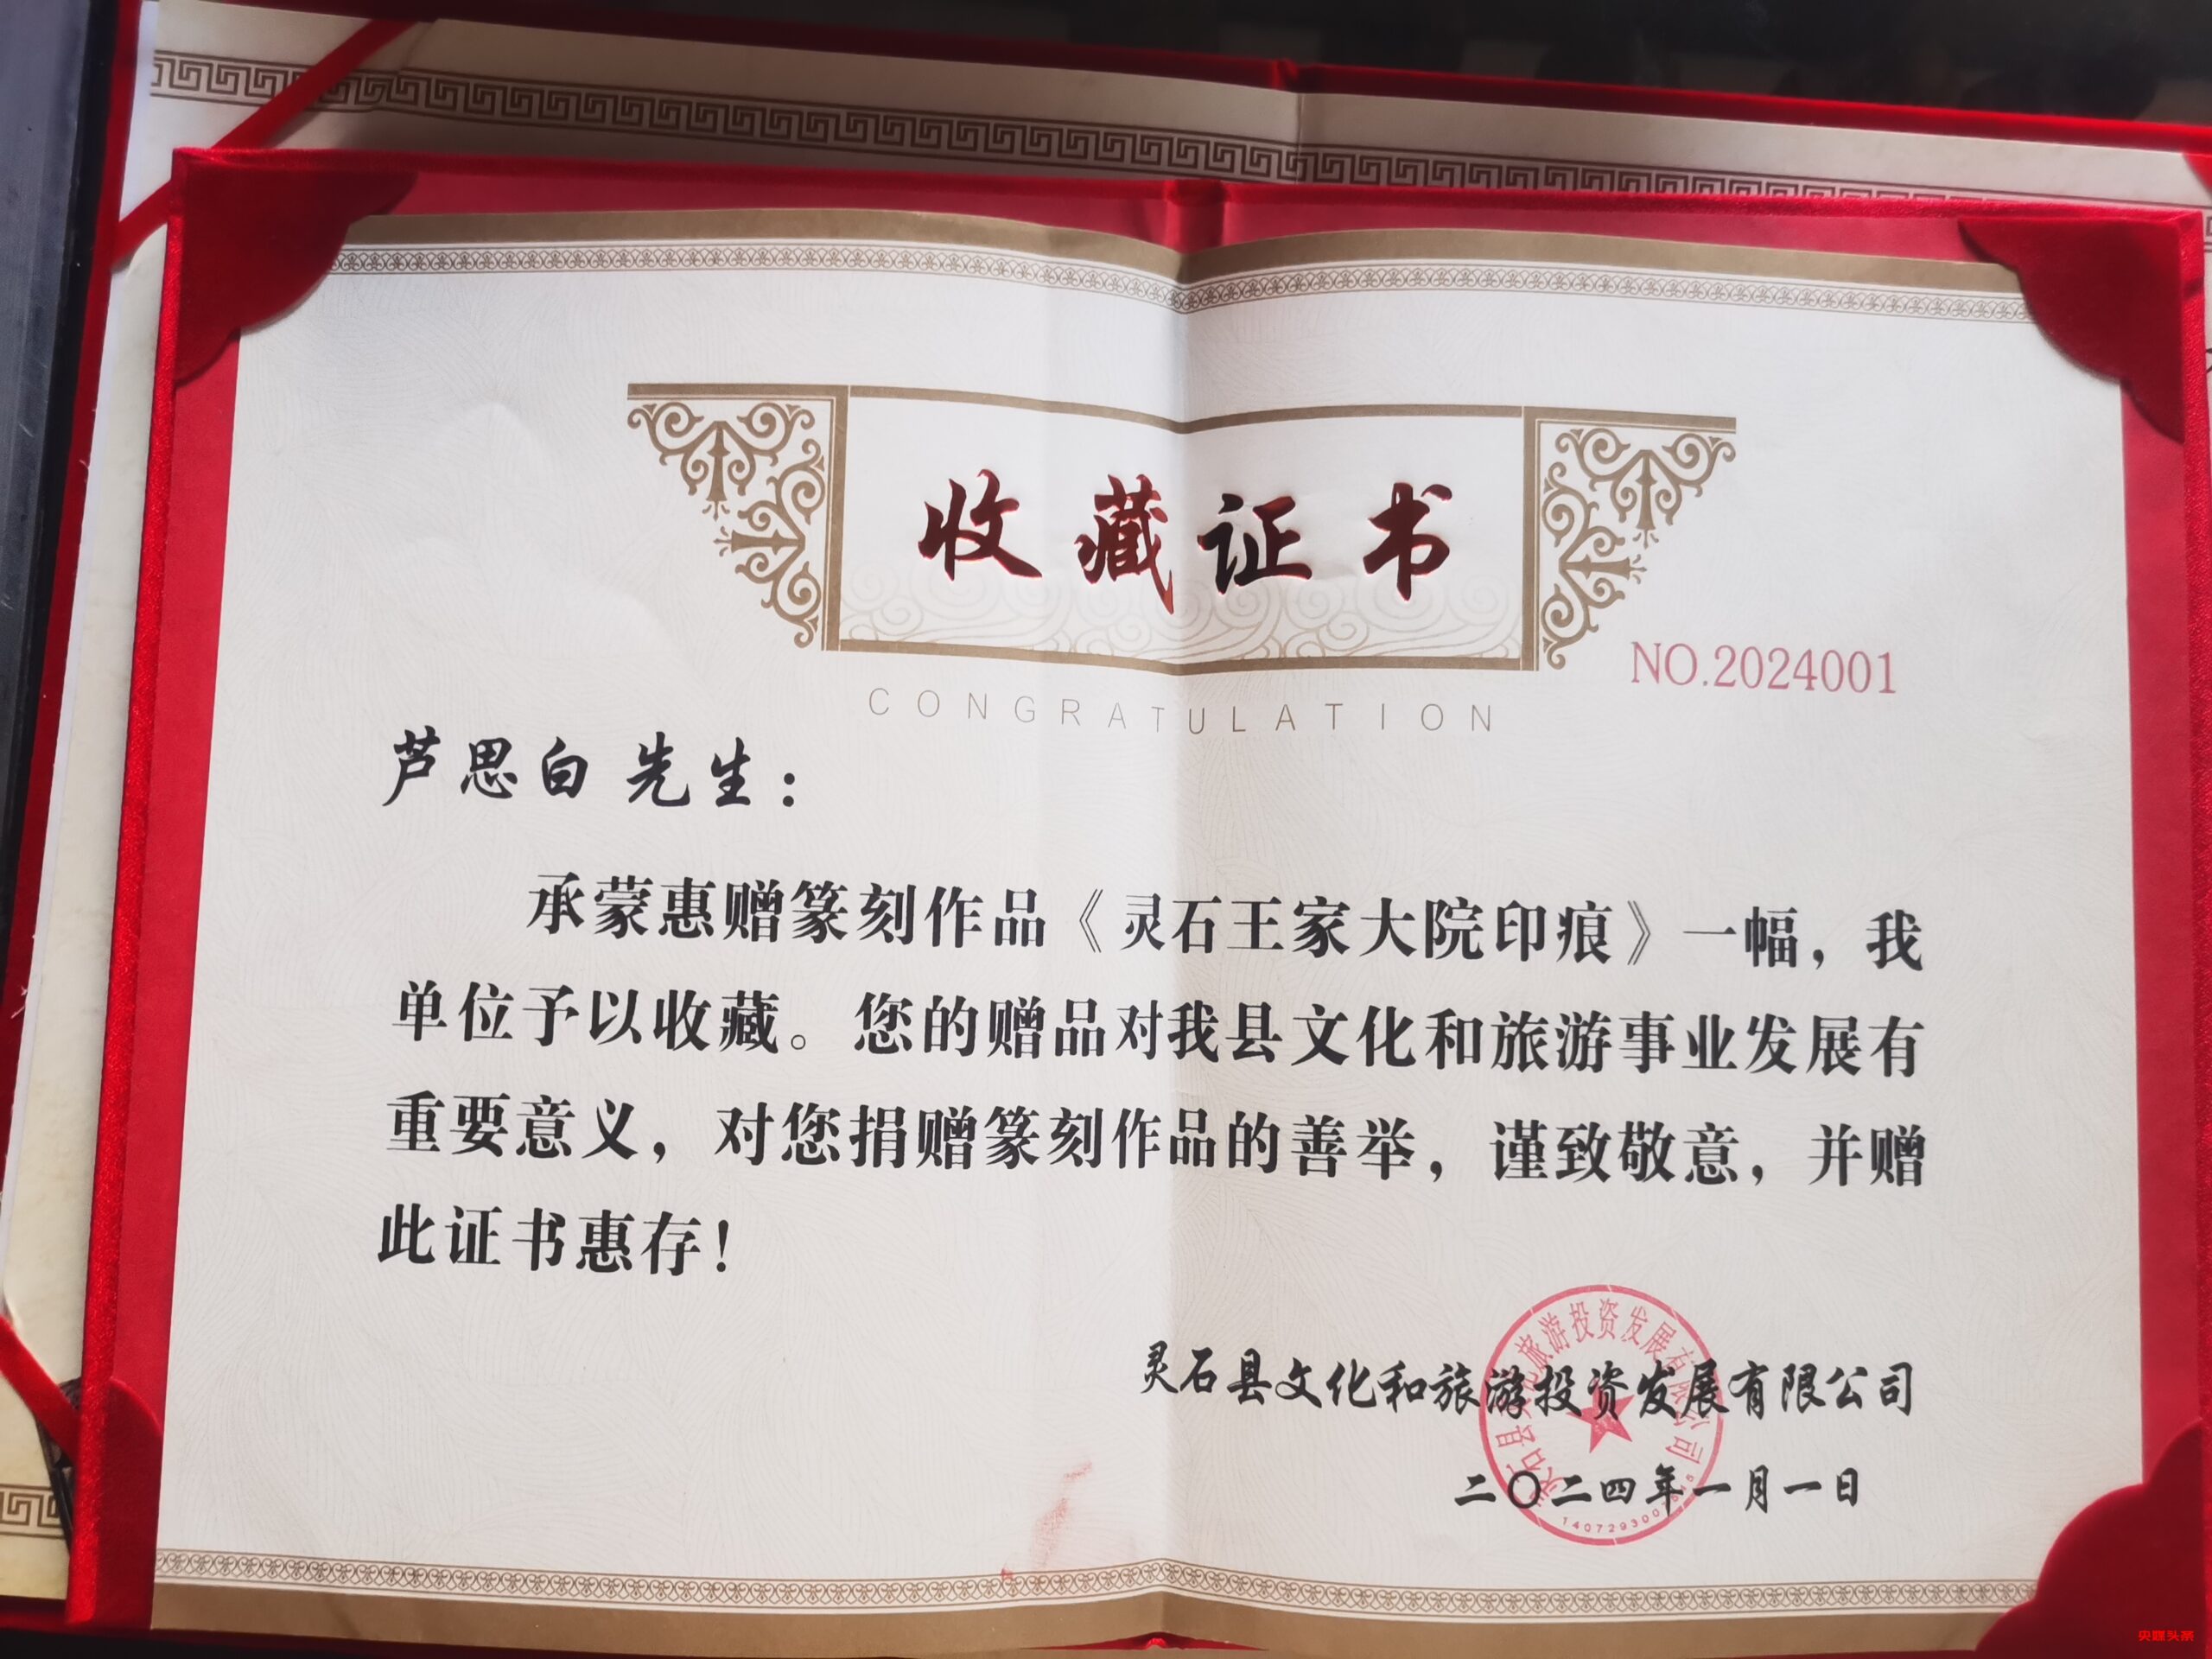 收藏证书
NO.2024001
CONGRATULATION
芦思白 先生：
承蒙惠赠篆刻作品《灵石王家大院印痕》一幅，我
单位予以收藏。您的赠品对我县文化和旅游事业发展有
重要意义，对您捐赠篆刻作品的善举，谨致敬意，并赠
此证书惠存！
灵石县文化和旅游投资发展有限公司
二〇二四年一月一日
央媒头条